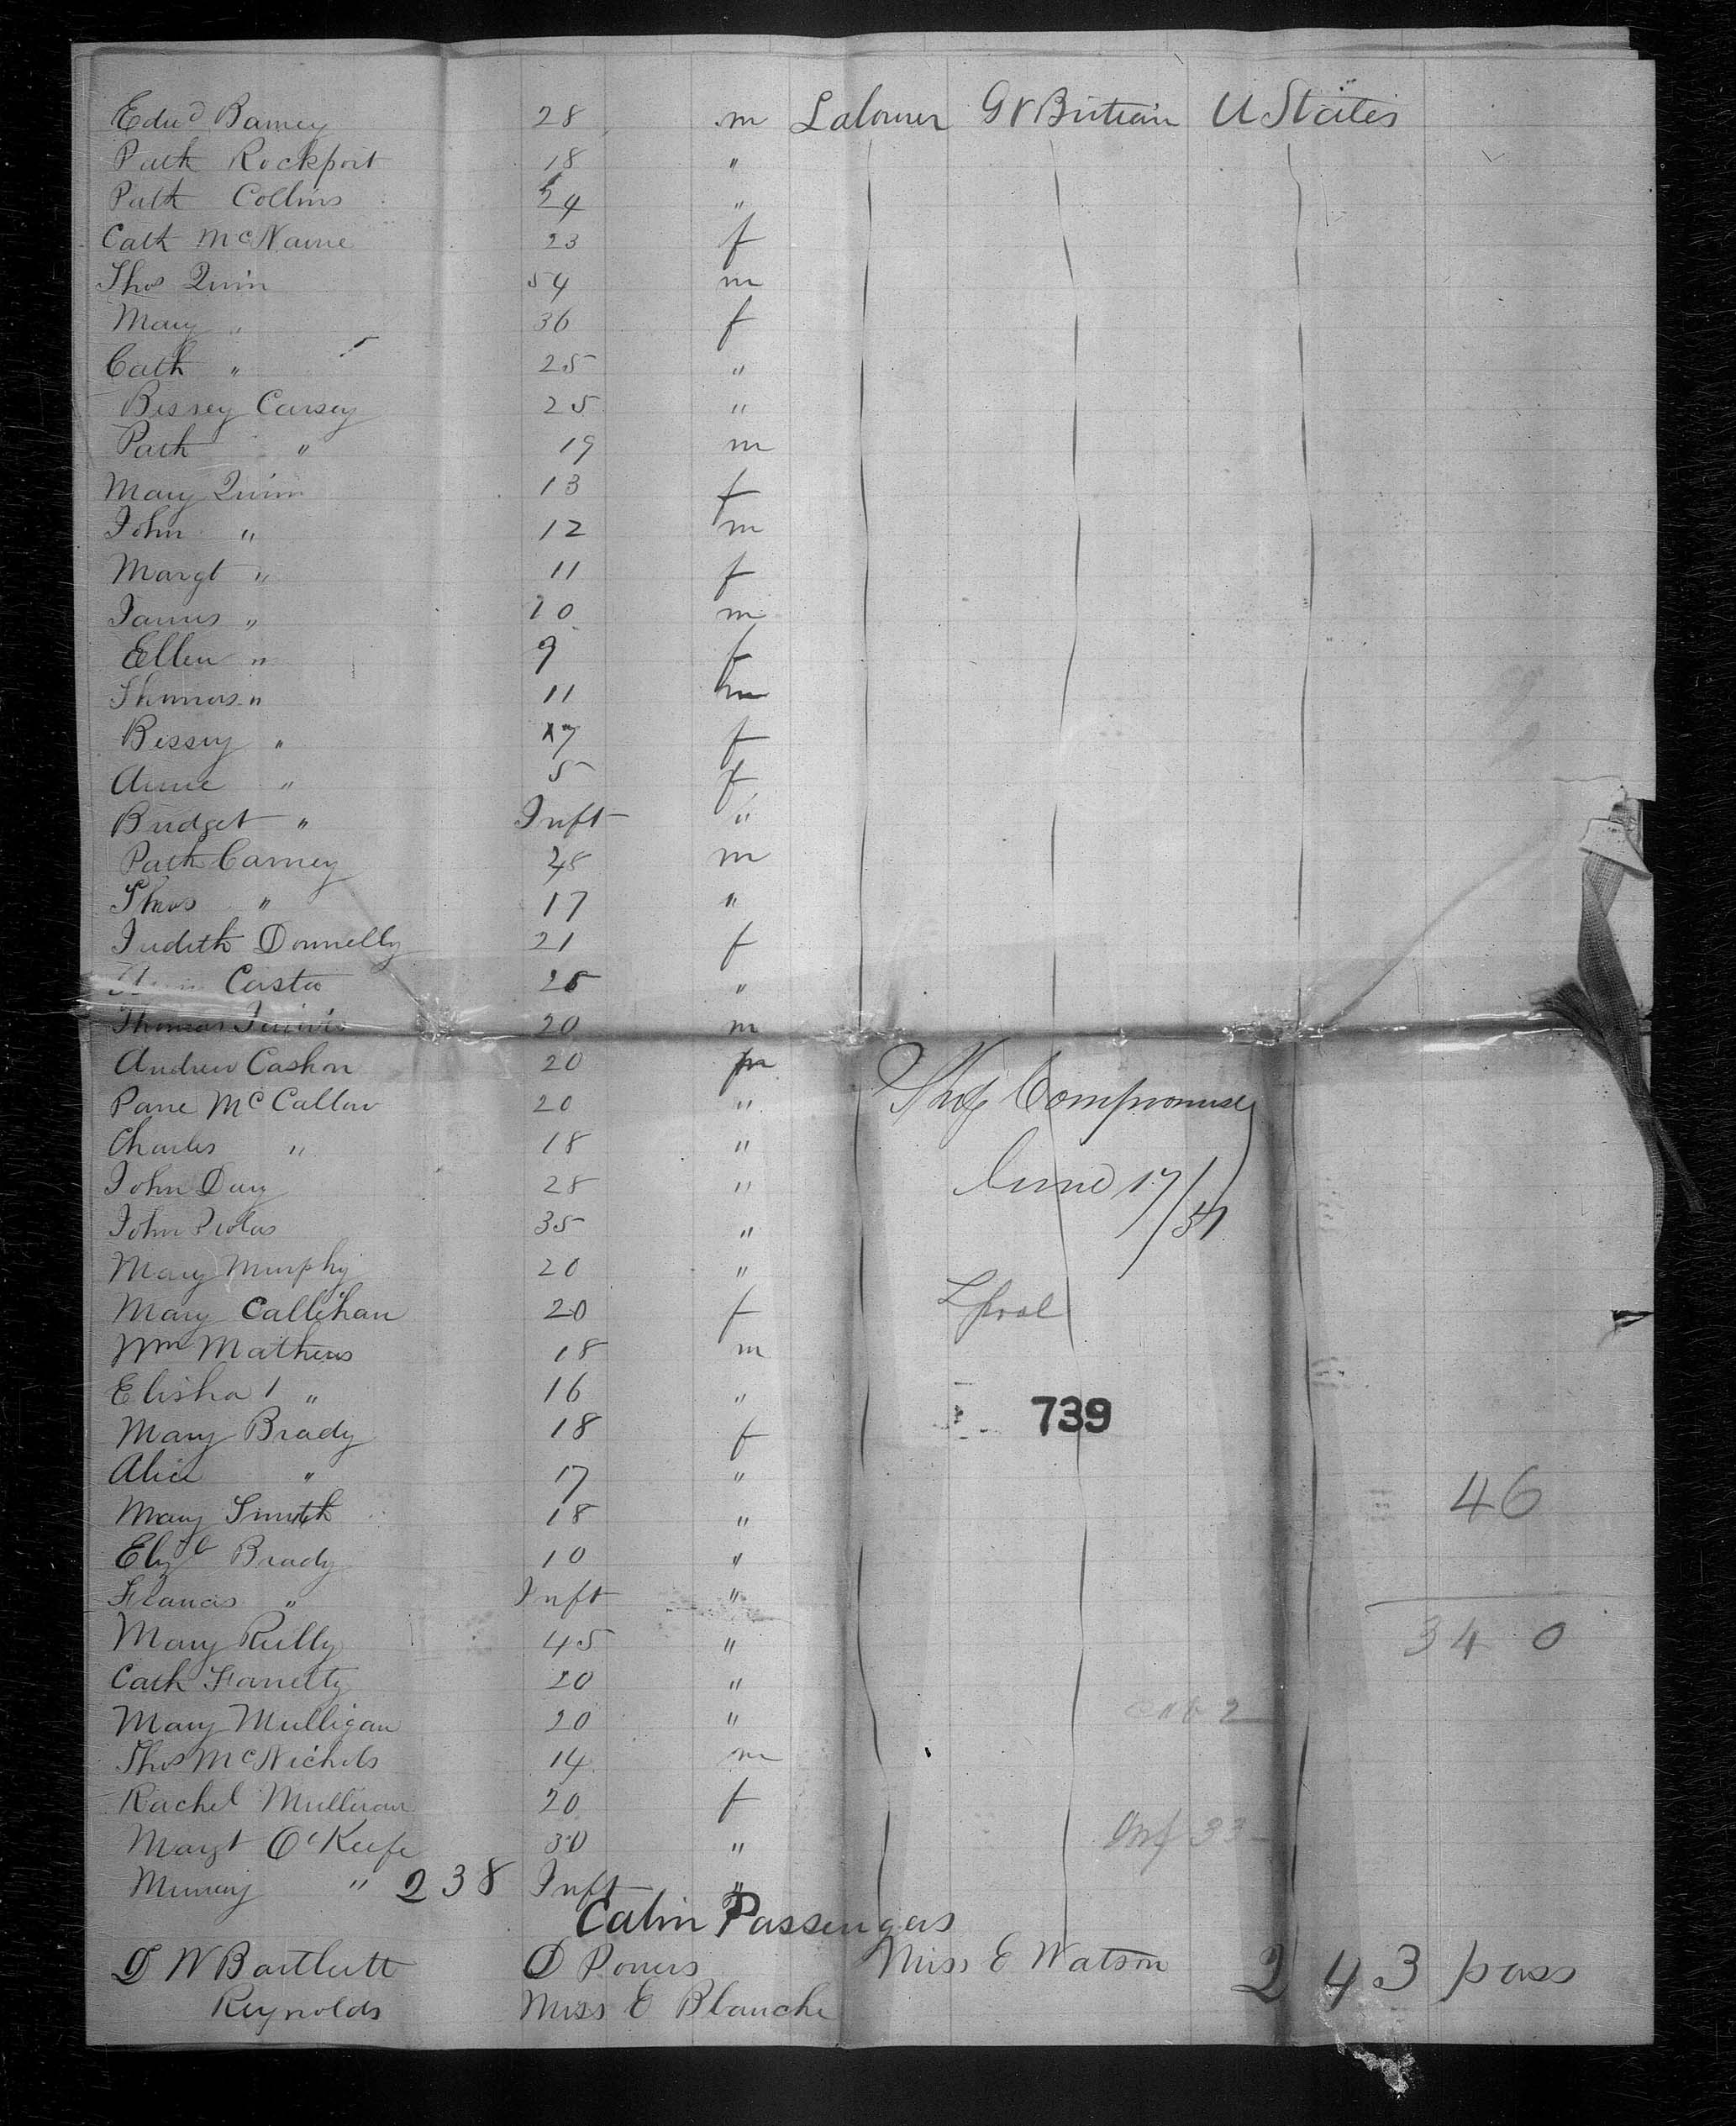 Edwd Barney 28 m Labourer Gt Britian U States
Patk Rockport 18 "
Patk Collins 24 "
Cath McName 23 f
Thos Quin 54 m
Mary " 36 f
Cath " 25 "
Bissey Carsey 25 "
Patk " 19 m
Mary Quinn 13 f
John " 12 m
Margt " 11 f
James " 10 m
Ellen " 9 f
Thomas " 11 m
Bissey " 7 f
Anne " 5 f
Bridget " Inft "
Patk Carney 48 m
Thos " 17 "
Judith Donnelly 21 f
Costa 25 "
Thomas 20 m
Andrew Cashon 20 m
McCallow 20 "
Charles " 18 "
John Day 28 "
John 35 "
Mary Murphy 20 "
Mary Callihan 20 f
Wm Mathews 18 m
Elisha " 16 "
Mary Brady 18 f
Alice " 17 "
Mary Smith 18 "
Elizb Brady 10 "
Francis " Inft "
Mary Rielly 45 "
Cath Farrelty 20 "
Mary Mulligan 20 "
Thos McNichols 14 m
Rachel Mulligan 20 f
Margt O'Keefe 30 "
Murray " 238 Inft "
Ship Compromise
June 17/51
Lpool
739
46
340
Cab 2
Inf 33
Cabin Passengers
D W Bartlett D Powers Miss E Watson 243 pass
Reynolds Miss E Blanche